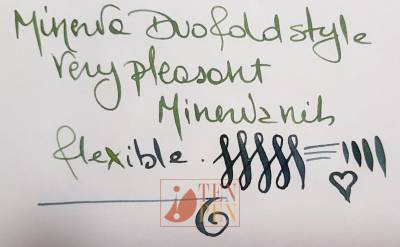 Minerva Duofold style
Very pleasant
Minerva nib
flexible.
TEN
PEN